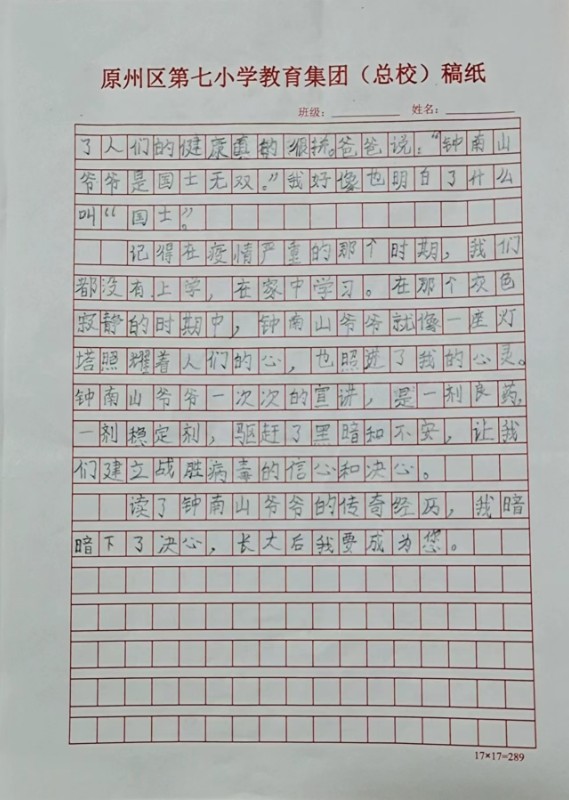 原州区第七小学教育集团（总校）稿纸
班级：
姓名：
了人们的健康真的很拼。爸爸说：“钟南山
爷爷是国士无双。”我好像也明白了什么
叫“国士”。
记得在疫情严重的那个时期，我们
都没有上学，在家中学习。在那个灰色
寂静的时期中，钟南山爷爷就像一座灯
塔照耀着人们的心，也照进了我的心灵。
钟南山爷爷一次次的宣讲，是一剂良药，
一剂稳定剂，驱赶了黑暗和不安，让我
们建立战胜病毒的信心和决心。
读了钟南山爷爷的传奇经历，我暗
暗下了决心，长大后我要成为您。
17×17=289